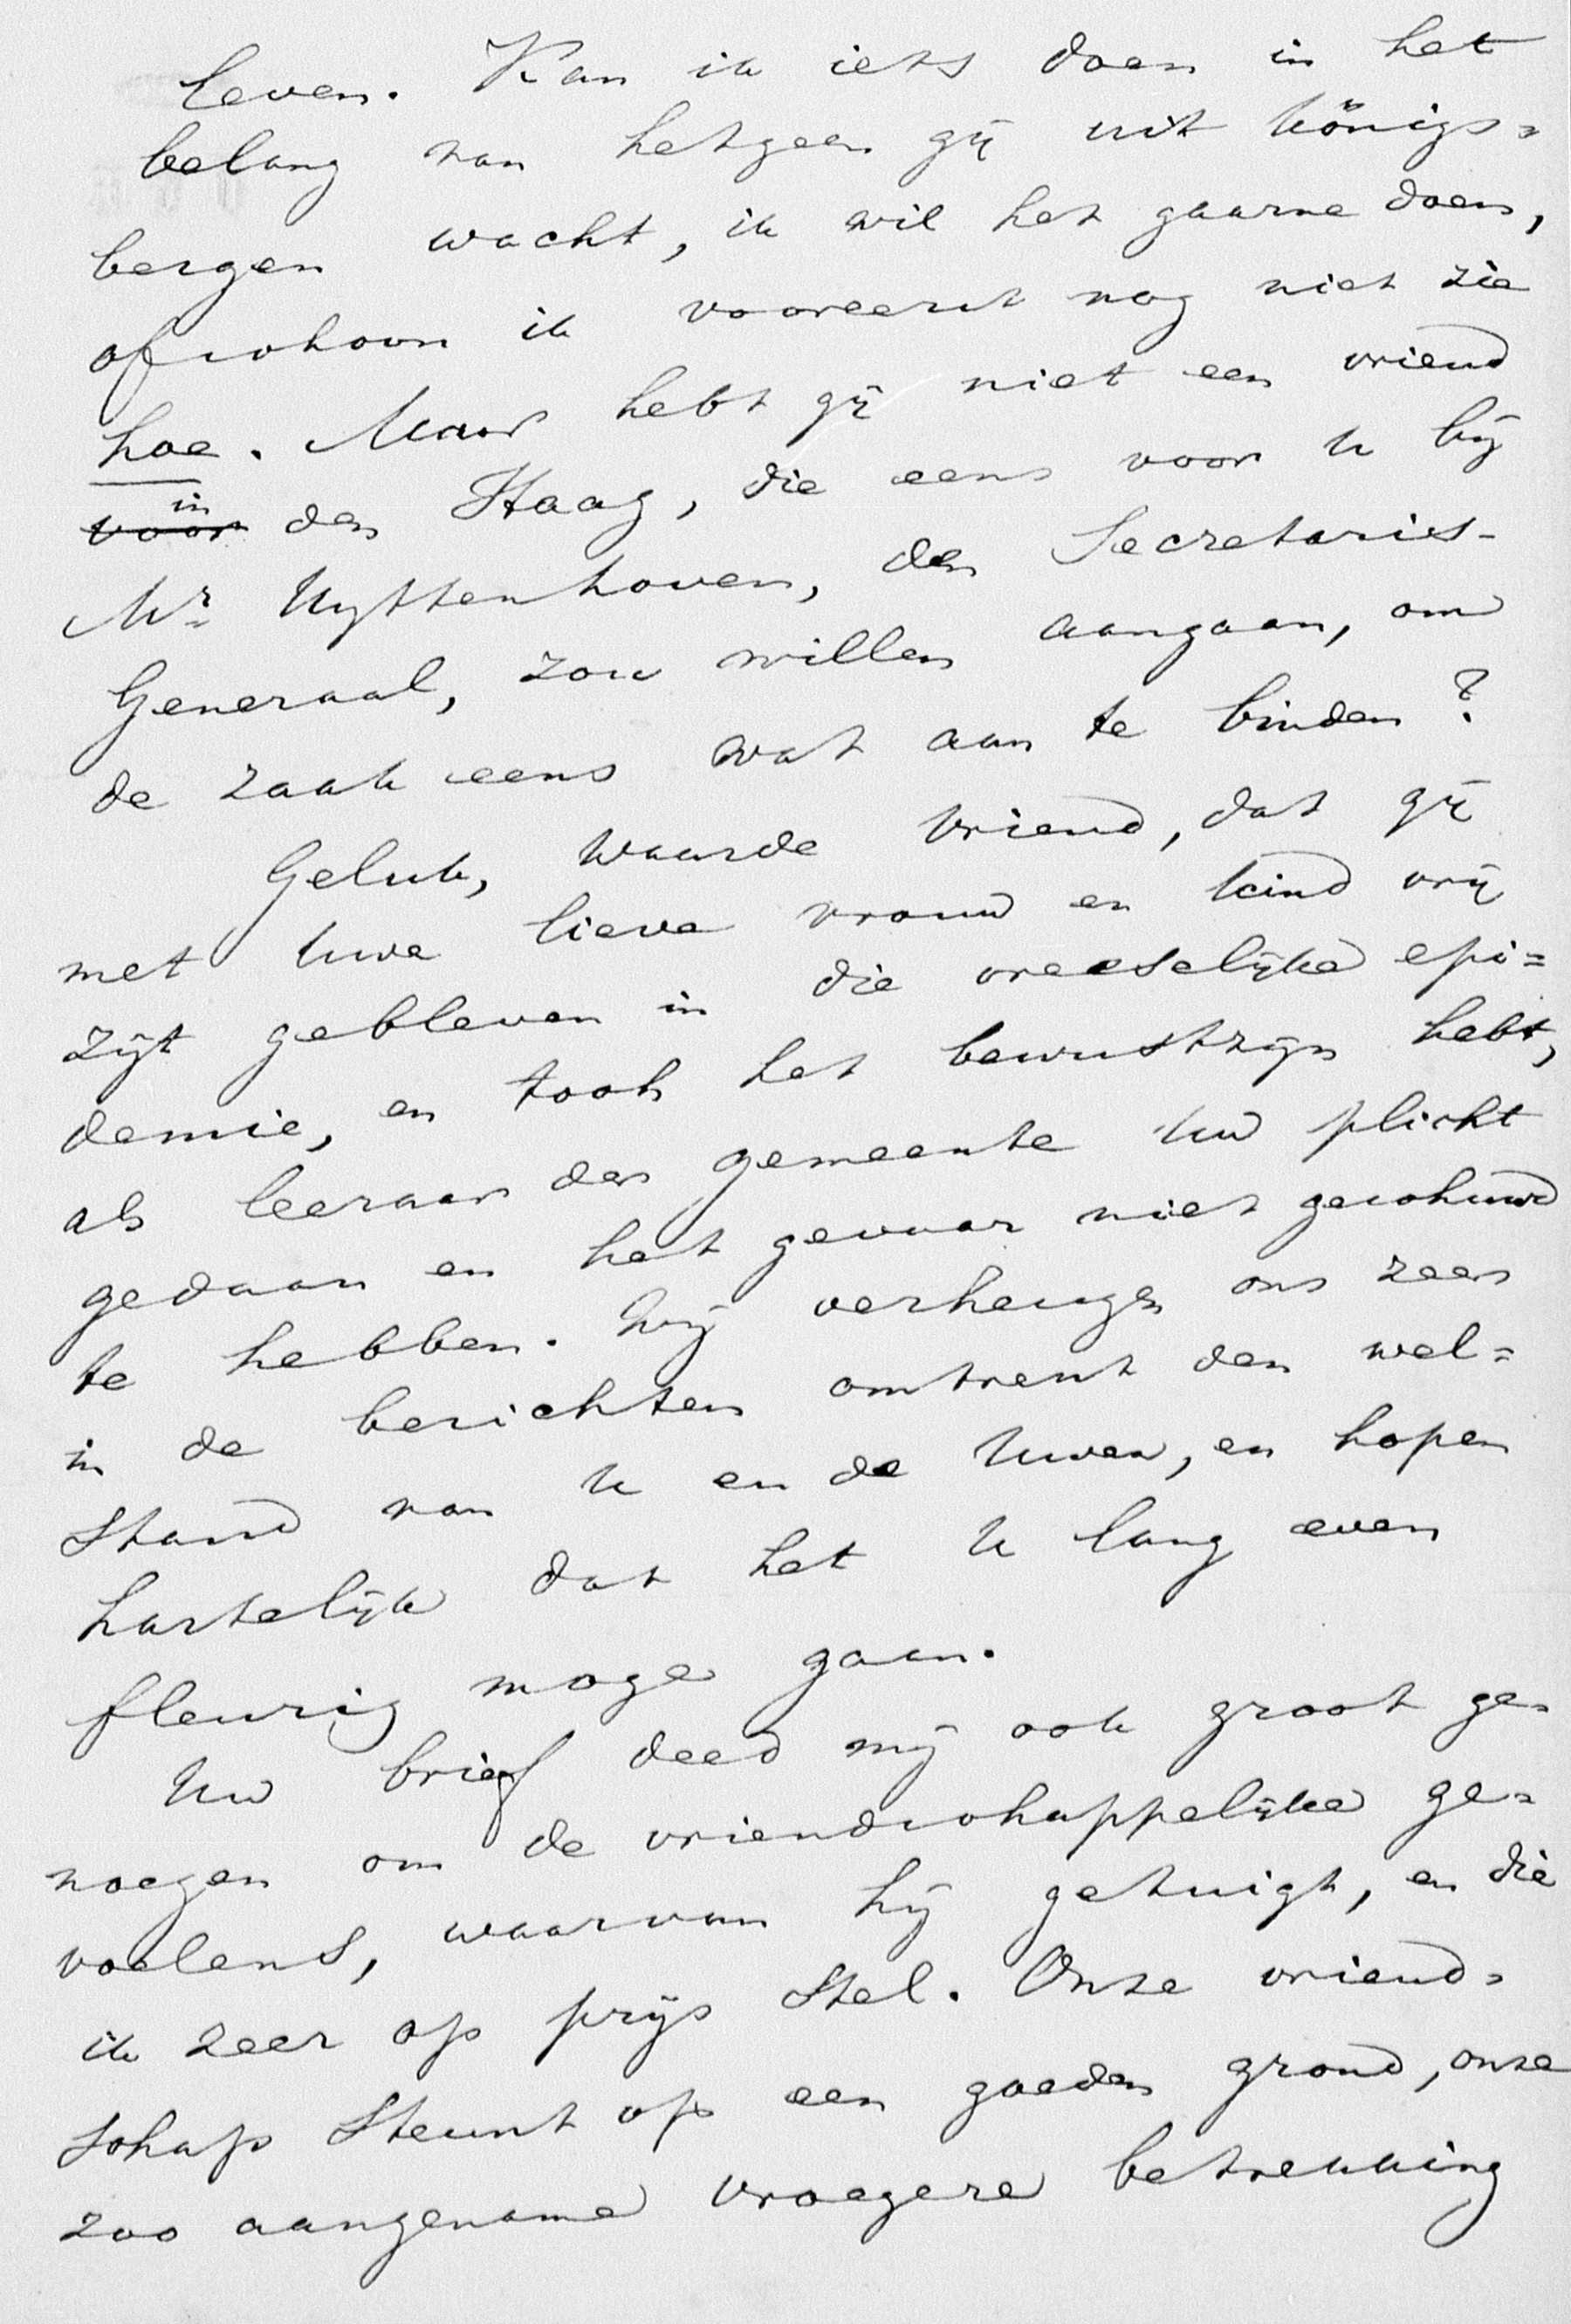 leven. Kan ik iets doen in het
belang van hetgeen gij uit Königs=
bergen wacht, ik wil het gaarne doen,
ofschoon ik vooreerst nog niet zie
hoe. Maar hebt gij niet een vriend
voor in den Haag, die eens voor U bij
Mr. Uyttenhoven, den Secretaris-
Generaal, zou willen aangaan, om
de zaak eens wat aan te binden?
Geluk, waarde vriend, dat gij
met Uwe lieve vrouw en kind vrij
zijt gebleven in die vreeselijke epi=
demie, en toch het bewustzijn hebt,
als leeraar der gemeente Uw plicht
gedaan en het gevaar niet geschuwd
te hebben. Wij verheugen ons zeer
in de berichten omtrent den wel=
stand van U en de Uwen, en hopen
hartelijk dat het U lang even
fleurig moge gaan.
Uw brief deed mij ook groot ge=
noegen om de vriendschappelijke ge=
voelens, waarvan hij getuigt, en die
ik zeer op prijs stel. Onze vriend=
schap steunt op een goeden grond, onze
zoo aangename vroegere betrekking